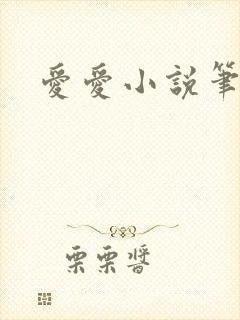 愛愛小説筆
栗栗醬